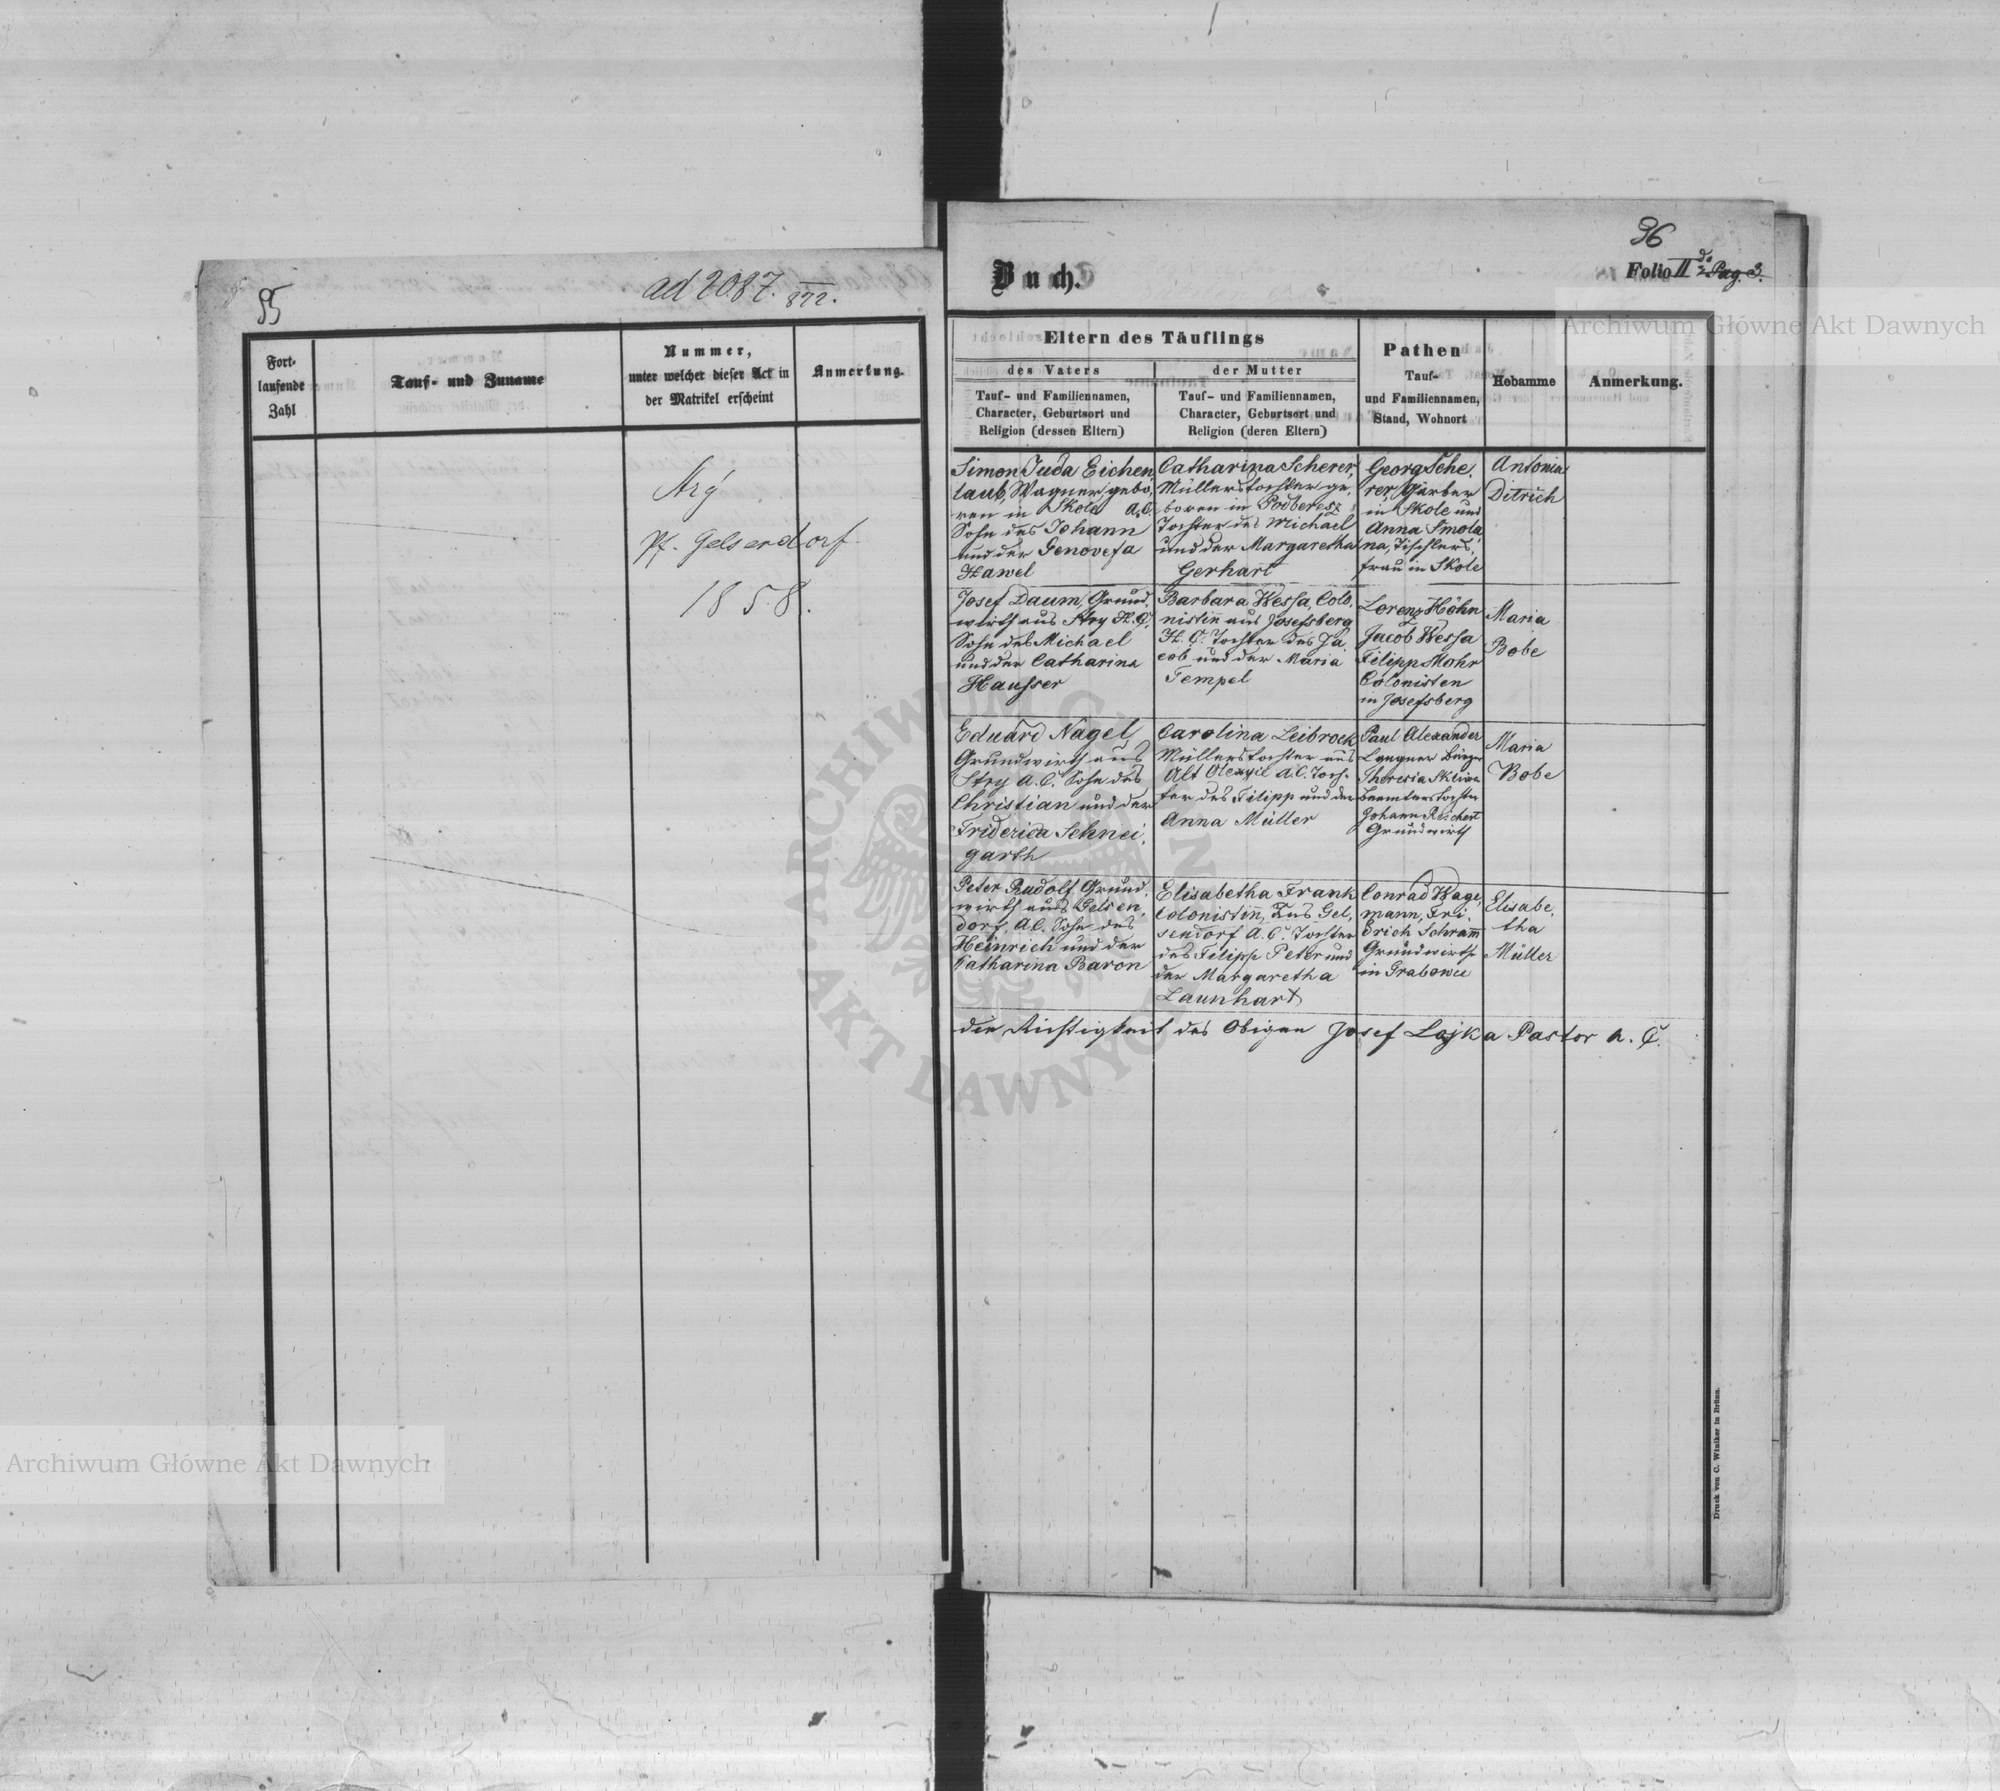 95
ad 2087. 872.
Fort-
laufende
Zahl
Tauf- und Zuname
Nummer,
unter welcher dieser Act in
der Matrikel erscheint
Anmerkung.
Pf. Gelsendorf
1858.
96
Buch.
Folio II do Pag. 3.
Archiwum Główne Akt Dawnych
Eltern des Täuflings
des Vaters
Tauf- und Familiennamen,
Character, Geburtsort und
Religion (dessen Eltern)
der Mutter
Tauf- und Familiennamen,
Character, Geburtsort und
Religion (deren Eltern)
Pathen
Tauf-
und Familiennamen,
Stand, Wohnort
Hebamme
Anmerkung.
Simon Juda Eichen
laub, Wagner, gebo,
ren in Skole A.C.
Sohn des Johann
und der Genovefa
Hawel
Catharina Scherer,
Müllerstochter ge,
boren in Podberesz
Tochter des Michael
und der Margaretha
Gerhart
Georg Sche,
rer, Gärber
in Skole und
Anna Smola
na, Tischlers,
frau in Skole
Antonia
Ditrich
Josef Daum, Grund,
wirth aus Stry H.C.
Sohn des Michael
und der Catharina
Hausser
Barbara Wessa, Colo,
nistin aus Josefsberg
H.C. Tochter des Ja,
cob und der Maria
Tempel
Lorenz Höhn
Jacob Wessa
Filipp Mohr
Colonisten
in Josefsberg
Maria
Bobe
Eduard Nagel
Grundwirth aus
Stry A.C. Sohn des
Christian und der
Friderica Schnei,
garth
Carolina Leibrock
Müllerstochter aus
Alt Olexyce A.C. Toch-
ter des Filipp und der
Anna Müller
Paul Alexander
Langner Bürger
Theresia Skliwa
Beamterstochter
Johann Reichert
Grundwirth
Maria
Bobe
Peter Rudolf, Grund,
wirth aus Gelsen,
dorf, A.C. Sohn des
Heinrich und der
Catharina Baron
Elisabetha Frank
Colonistin, aus Gel,
sendorf A.C. Tochter
des Filipp Peter und
der Margaretha
Launhart
Conrad Wage,
mann, Fri,
drich Schramm
Grundwirthe
in Grabowce
Elisabe,
tha
Müller
die Richtigkeit des Obigen Josef Lajka Pastor A.C.
Druck von C. Winiker in Brünn.
ARCHIWUM GŁÓWNE AKT DAWNYCH
Archiwum Główne Akt Dawnych